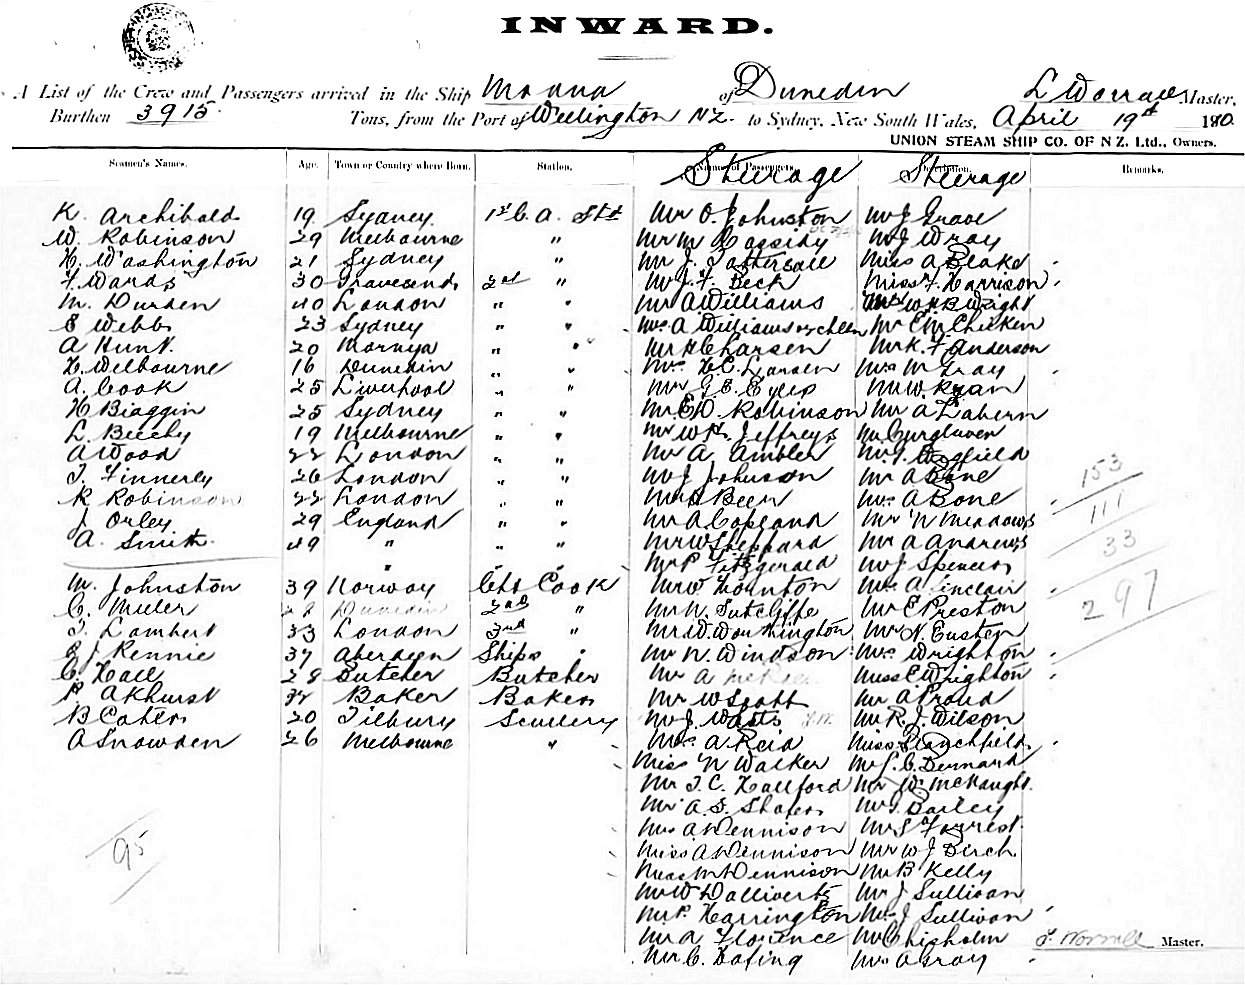 INWARD.
A List of the Crew and Passengers arrived in the Ship Moana of Dunedin L Worrall Master,
Burthen 3915 Tons, from the Port of Wellington NZ. to Sydney, New South Wales, April 19th 190
UNION STEAM SHIP CO. OF N Z. Ltd., Owners.
Seamen's Names. Age. Town or Country where Born. Station. Names of Passengers. Description. Remarks.
Steerage Steerage
K. Archibald 19 Sydney 1st C. A. Stt Mr O. Johnston Mr J Grave
W. Robinson 29 Melbourne " Mr M Cassidy Mr J Wray
H. Washington 21 Sydney " Mr J. Tattersall Miss A Blake
F. Wards 30 Gravesend 2nd " Mr J. F. Beck Miss F. Harrison
M. Durden 40 London " " Mr A Williams W B Wright
E Webb 23 Sydney " " Mrs A Williams Mr E M Chicken
A Hunt. 20 Moruya " " Mr H C Larsen Mr K. F. Anderson
H. Welbourne 16 Dunedin " " Mrs H C. Larsen Mrs M Gray
A. Cook 25 Liverpool " " Mr G E Eyles Mr W. Ryan
H Biaggin 25 Sydney " " Mr E D. Robinson Mr A Lahern
L. Beechy 19 Melbourne " " Mr W H. Jeffreys Mr
A Wood 22 London " " Mr A. Ambler Mr
T. Finnerly 26 London " " Mr J Johnson Mr A Bone
R Robinson 22 London " " Mr Beer Mrs A Bone
J Orley 29 England " " Mr A Copeland Mr N Meadows
A. Smith 49 " " " Mr W Sheppard Mr A Andrews
" " " Mr P Fitzgerald Mr J Spencer
M. Johnston 39 Norway Chf Cook Mr W Thornton Mrs A Sinclair
C. Muler 28 Dunedin 2nd " Mr N. Sutcliffe Mr E Preston
T. Lambert 33 London 3rd " Mr W. Worthington Mr N. Eusten
E J Rennie 37 Aberdeen Ships " Mr N. Windson Mrs Wrighton
C. Hall 28 Butcher Butcher Mr A Miss E Wrighton
P. Akhurst 34 Baker Baker Mr W Scott Mr A Proud
B Cater 20 Tilbury Scullery Mr J. Watts Mr R. J. Wilson
A Snowden 26 Melbourne " Mrs A Reid Miss Blanchfield
Miss N Walker Mr J. C. Bernard
Mr T. C. Hallford Mr W. McNaught.
Mr A. S. Mr T. Bailey
Mrs A Dennison Mr S Forrest
Miss A Dennison Mr W J Birch.
Miss M Dennison Mr B Kelly
Mr W Dalliverts Mr J Sullivan
Mr P. Harrington Mrs J Sullivan
Mr A Florence Mr Chisholm J. Worrall Master.
Mr C. Mrs A Gray
153
111
33
297
95